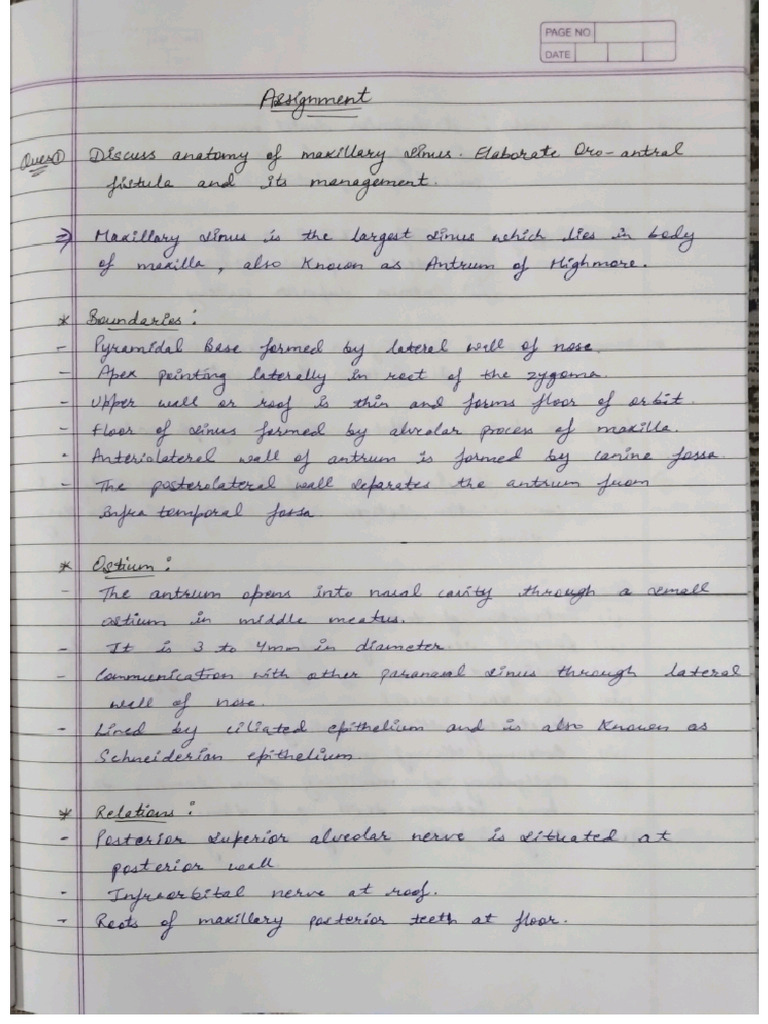 PAGE NO
DATE
Assignment
Ques① Discuss anatomy of maxillary sinus. Elaborate Oro-antral
fistula and its management.
⇒ Maxillary sinus is the largest sinus which lies in body
of maxilla, also known as Antrum of Highmore.
* Boundaries:
- Pyramidal Base formed by lateral wall of nose.
- Apex pointing laterally in root of the zygoma.
- Upper wall or roof is thin and forms floor of orbit.
- Floor of sinus formed by alveolar process of maxilla.
- Anteriolateral wall of antrum is formed by canine fossa.
- The posterolateral wall separates the antrum from
Infra temporal fossa.
* Ostium:
- The antrum opens into nasal cavity through a small
ostium in middle meatus.
- It is 3 to 4mm in diameter
- Communication with other paranasal sinus through lateral
wall of nose.
- Lined by ciliated epithelium and is also known as
Schneiderian epithelium.
* Relations:
- Posterior superior alveolar nerve is situated at
posterior wall
- Infraorbital nerve at roof.
- Roots of maxillary posterior teeth at floor.